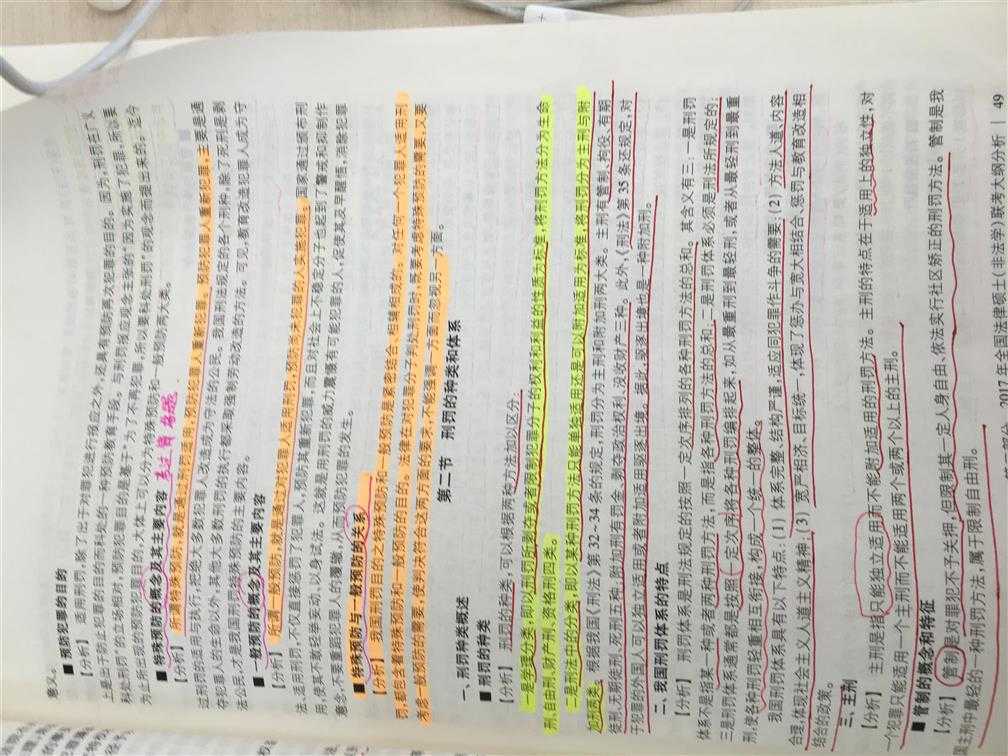 意义。
■ 预防犯罪的目的
【分析】 适用刑罚,除了出于对罪犯进行报应之外,还具有预防再次犯罪的目的。因为,刑罚在广义
上是出于防止犯罪的目的而科处的一种预防教育手段。与刑罚报应观念主张的“因为实施了犯罪,所以要
科处刑罚”的立场相对,预防犯罪目的是基于“为了不再犯罪,所以要科处刑罚”的观念而提出来的。迄今
为止所出现的预防犯罪目的,大体上可以分为特殊预防和一般预防两大类。
■ 特殊预防的概念及其主要内容
【分析】 所谓特殊预防,就是通过刑罚适用,预防犯罪人重新犯罪。预防犯罪人重新犯罪,主要是通
过刑罚的适用与执行,把绝大多数犯罪人改造成为守法的公民。我国刑法规定的各个刑种,除了死刑是剥
夺犯罪人的生命以外,其他大多数刑罚的执行都采取强制劳动改造的方法。可见,教育改造犯罪人成为守
法公民,才是我国刑罚特殊预防的主要内容。
■ 一般预防的概念及其主要内容
【分析】 所谓一般预防,就是通过对犯罪人适用刑罚,预防尚未犯罪的人实施犯罪。国家通过颁布刑
法、适用刑罚,不仅直接惩罚了犯罪人,预防其重新犯罪,而且对社会上不稳定分子也起到了警戒和抑制作
用,使其不敢轻举妄动、以身试法。这就是用刑罚的威力震慑有可能犯罪的人,促使其及早醒悟,消除犯罪
意念,不重蹈犯罪人的覆辙,从而预防犯罪的发生。
■ 特殊预防与一般预防的关系
【分析】 我国刑罚目的之特殊预防和一般预防是紧密结合、相辅相成的。对任何一个犯罪人适用刑
罚,都包含着特殊预防和一般预防的目的。法律在对犯罪分子判处刑罚时,既要考虑特殊预防的需要,又要
考虑一般预防的需要,使判决符合这两方面的要求,不能强调一方面而忽视另一方面。
第二节 刑罚的种类和体系
一、刑罚种类概述
■ 刑罚的种类
【分析】 刑罚的种类,可以根据两种方法加以区分:
一是学理分类,即以刑罚所剥夺或者限制犯罪分子的权利和利益的性质为标准,将刑罚方法分为生命
刑、自由刑、财产刑、资格刑四类。
二是刑法中的分类,即以某种刑罚方法只能单独适用还是可以附加适用为标准,将刑罚分为主刑与附
加刑两类。
根据我国《刑法》第 32-34 条的规定,刑罚分为主刑和附加刑两大类。主刑有管制、拘役、有期
徒刑、无期徒刑、死刑五种,附加刑有罚金、剥夺政治权利、没收财产三种。此外,《刑法》第 35 条还规定,对
于犯罪的外国人可以独立适用或者附加适用驱逐出境。据此,驱逐出境也是一种附加刑。
二、我国刑罚体系的特点
【分析】 刑罚体系是刑法规定的按照一定次序排列的各种刑罚方法的总和。其含义有三:一是刑罚
体系不是指某一种或者两种刑罚方法,而是指各种刑罚方法的总和;二是刑罚体系必须是刑法所规定的;
三是刑罚体系通常都是按照一定次序将各种刑罚编排起来,如从最重刑到最轻刑,或者从最轻刑到最重
刑,使各种刑罚轻重相互衔接,构成一个统一的整体。
我国刑罚体系具有以下特点:(1) 体系完整、结构严谨,适应同犯罪作斗争的需要;(2) 方法人道、内容
合理,体现社会主义人道主义精神;(3) 宽严相济、目标统一,体现了惩办与宽大相结合、惩罚与教育改造相
结合的政策。
三、主刑
【分析】 主刑是指只能独立适用而不能附加适用的刑罚方法。主刑的特点在于适用上的独立性,对
一个犯罪只能适用一个主刑而不能适用两个或两个以上的主刑。
■ 管制的概念和特征
【分析】 管制是对罪犯不予关押,但限制其一定人身自由,依法实行社区矫正的刑罚方法。管制是我
国主刑中最轻的一种刑罚方法,属于限制自由刑。
2017 年全国法律硕士(非法学)联考大纲分析 | 49